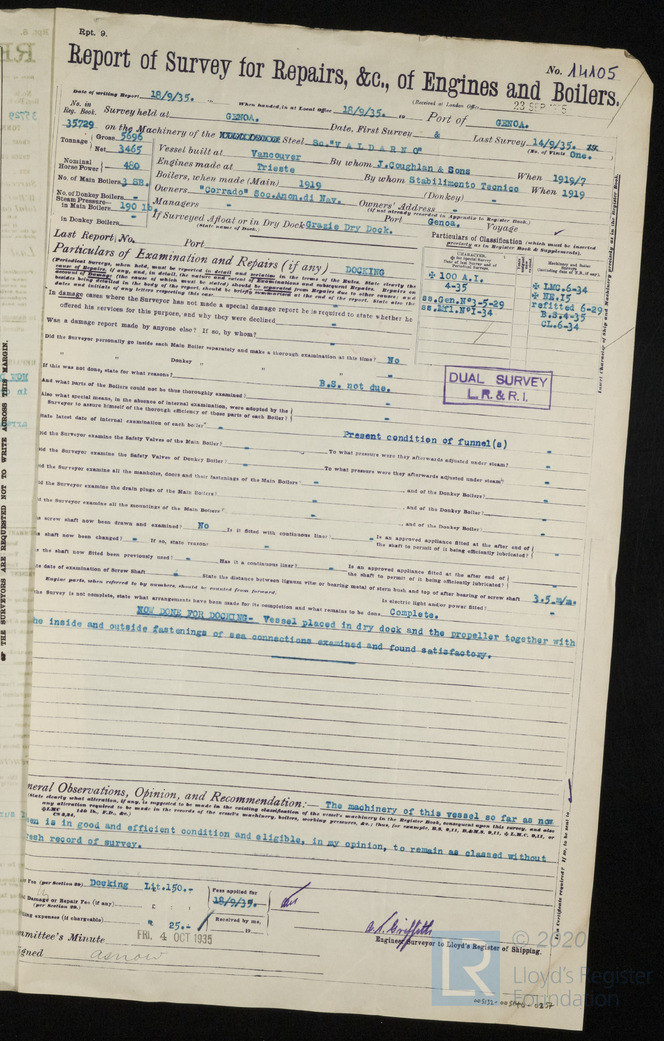 Rpt. 9.
Report of Survey for Repairs, &c., of Engines and Boilers.
No. 14105
Date of writing Report 18/9/35. When handed in at Local Office 18/9/35. 19 (Received at London Office 23 SEP 1935
No. in Reg. Book. Survey held at GENOA. Date, First Survey & Port of GENOA. Last Survey 14/9/35. 19
35729 on the Machinery of the Steel Sc. "VALDARNO" (No. of Visits One.
Tonnage Gross 5696
Net 3465
Vessel built at Vancouver By whom J.Coughlan & Sons When 1919/7
Nominal Horse Power 480
Engines made at Trieste By whom Stabilimento Tecnico When 1919
No. of Main Boilers 3 SB.
Boilers, when made (Main) 1919 (Donkey) -
No. of Donkey Boilers -
Owners "Corrado" Soc.Anon.di Nav. Owners' Address -
(If not already recorded in Appendix to Register Book.)
Steam Pressure in Main Boilers 190 lb
Managers - Port Genoa. Voyage
in Donkey Boilers -
If Surveyed Afloat or in Dry Dock Grazie Dry Dock.
(State name of Dock.)
Last Report, No. Port
Particulars of Classification (which must be inserted precisely as in Register Book & Supplements).
Particulars of Examination and Repairs (if any) DOCKING
CHARACTER.
✠ 100 A.1.
4-35
ss.Gen.Nº3-5-29
ss.Mtl.Nº1-34
✠ LMC.6-34
✠ NE.15
refitted 6-29
B.S.4-35
CL.6-34
In damage cases where the Surveyor has not made a special damage report he is required to state whether he
offered his services for this purpose, and why they were declined -
Was a damage report made by anyone else? If so, by whom? -
Did the Surveyor personally go inside each Main Boiler separately and make a thorough examination at this time? No
" " Donkey " " " -
If this was not done, state for what reasons? B.S. not due.
And what parts of the Boilers could not be thoroughly examined? -
DUAL SURVEY
L.R. & R.I.
Also what special means, in the absence of internal examination, were adopted by the
Surveyor to assure himself of the thorough efficiency of those parts of each Boiler? -
State latest date of internal examination of each boiler - Present condition of funnel(s) -
Did the Surveyor examine the Safety Valves of the Main Boiler? - To what pressure were they afterwards adjusted under steam? -
Did the Surveyor examine the Safety Valves of Donkey Boiler? - To what pressure were they afterwards adjusted under steam? -
Did the Surveyor examine all the manholes, doors and their fastenings of the Main Boilers? - , and of the Donkey Boilers? -
Did the Surveyor examine the drain plugs of the Main Boilers? - , and of the Donkey Boiler? -
Did the Surveyor examine all the mountings of the Main Boilers? - , and of the Donkey Boiler? -
screw shaft now been drawn and examined? No Is it fitted with continuous liner? - Is an approved appliance fitted at the after end of
the shaft to permit of it being efficiently lubricated? -
shaft now been changed? - If so, state reasons -
the shaft now fitted been previously used? - Has it a continuous liner? - Is an approved appliance fitted at the after end of
the shaft to permit of it being efficiently lubricated? -
date of examination of Screw Shaft - State the distance between lignum vitæ or bearing metal of stern bush and top of after bearing of screw shaft 3.5.m/m.
Engine parts, when referred to by numbers, should be counted from forward. Is electric light and/or power fitted? -
the Survey is not complete, state what arrangements have been made for its completion and what remains to be done. Complete.
NOW DONE FOR DOCKING- Vessel placed in dry dock and the propeller together with
he inside and outside fastenings of sea connections examined and found satisfactory.
neral Observations, Opinion, and Recommendation:— The machinery of this vessel so far as now
en is in good and efficient condition and eligible, in my opinion, to remain as classed without
esh record of survey.
Fee (per Section 29) Docking Lit.150.- Fees applied for 18/9/35.
Damage or Repair Fee (if any) (per Section 29.) £ :
elling expenses (if chargeable) " 25.- Received by me, 19
mmittee's Minute FRI. 4 OCT 1935
igned as now
Engineer Surveyor to Lloyd's Register of Shipping.
THE SURVEYORS ARE REQUESTED NOT TO WRITE ACROSS THIS MARGIN.
LR © 2020
Lloyd's Register
Foundation